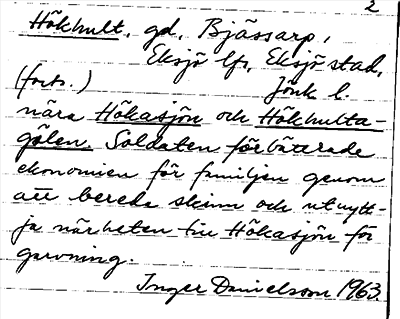 2
Hökhult, gd, Bjässarp,
Eksjö lfs, Eksjö stad,
(forts.) Jönk l.
nära Hökasjön och Hökhulta-
gölen. Soldaten förbättrade
ekonomien för familjen genom
att bereda skinn och utnytt-
ja närheten till Hökasjön för
garvning.
Inger Danielsson 1963.